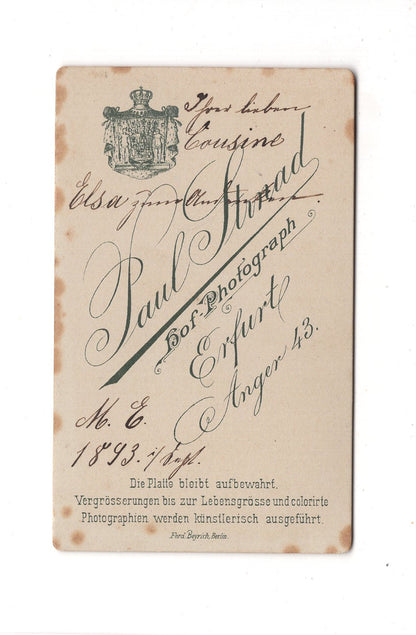 Ihrer lieben
Cousine
Elsa zum Andenken.
Paul Strnad
Hof-Photograph
Erfurt
Anger 43.
M. E.
1893. Sept.
Die Platte bleibt aufbewahrt.
Vergrösserungen bis zur Lebensgrösse und colorirte
Photographien werden künstlerisch ausgeführt.
Ferd. Beyrich, Berlin.